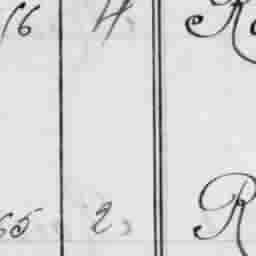 16 4. R
65 2, R